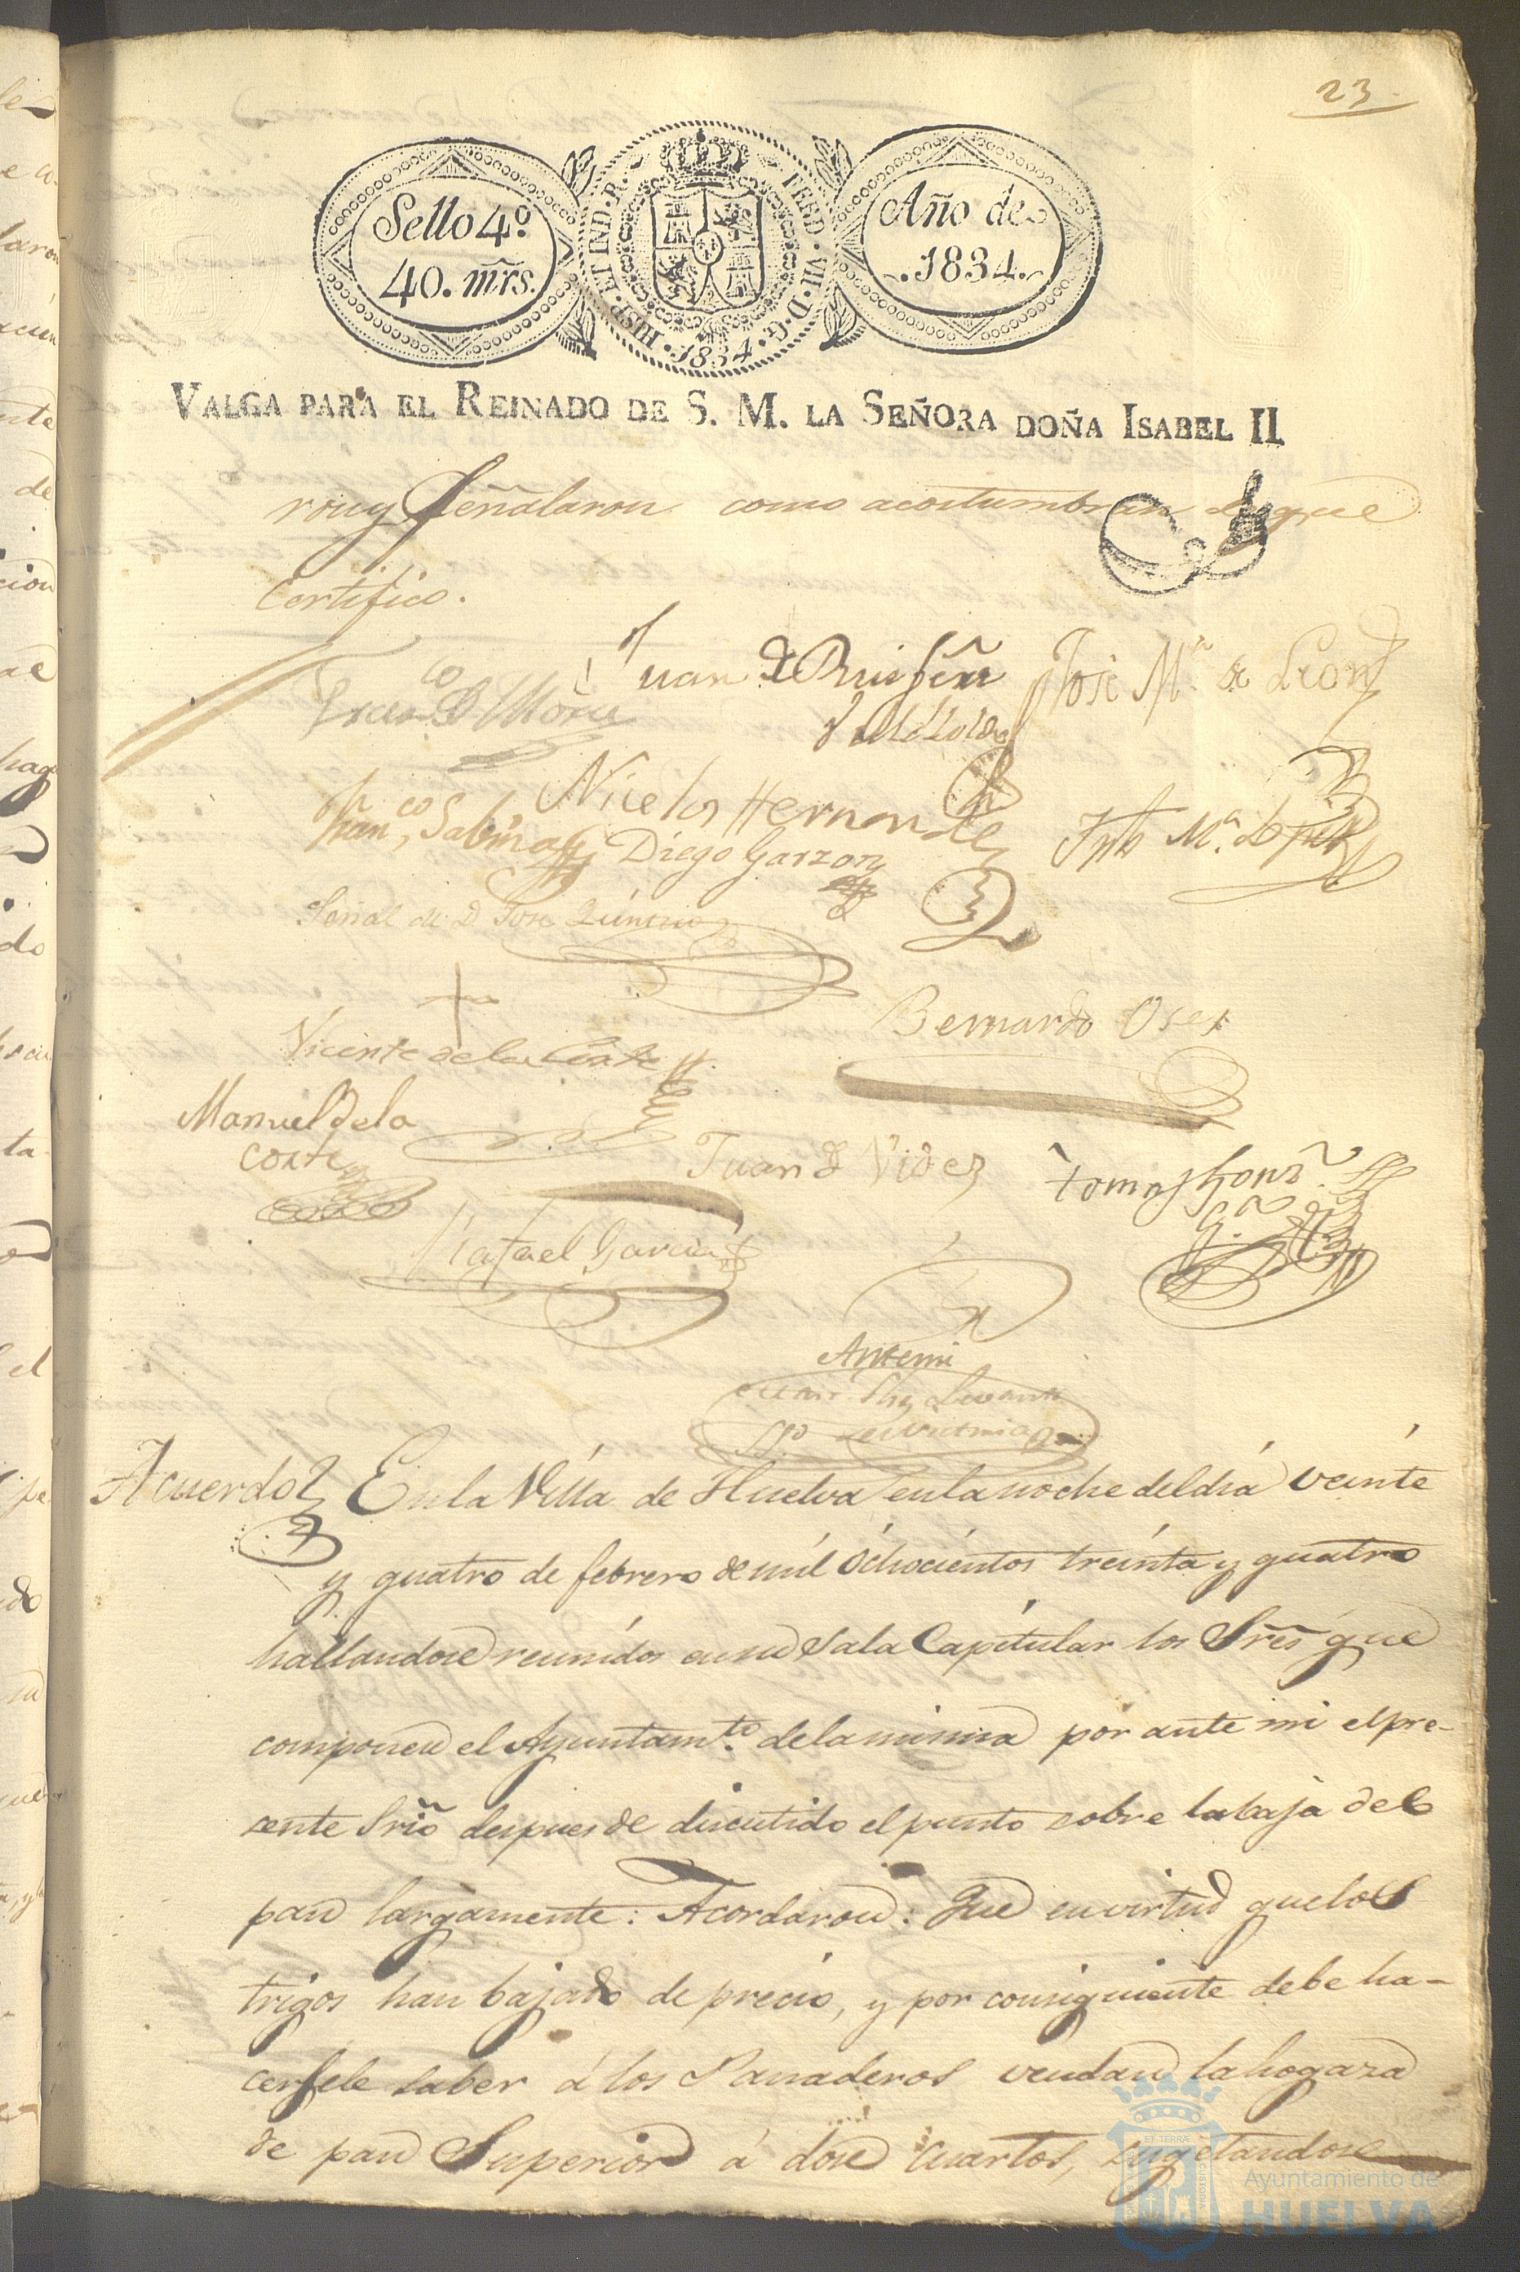 23
Sello 4º
40. mrs.
HISP. ET IND. R. FERD. VII. D. G. 1834.
Año de
1834.
VALGA PARA EL REINADO DE S. M. LA SEÑORA DOÑA ISABEL II
ron y señalaron como acostumbran de que
Certifico.
Juan de José Mª de Leon
Franco
Nicolas Hernandez
Franco Sabina Diego Garzon
Señal de D José Quintero
Bernardo
Vicente de la Corte
Manuel de la
Corte
Juan de Videz
Rafael Garcia
Ante mi
Acuerdo En la Villa de Huelva en la noche del dia veinte
y quatro de febrero de mil ochocientos treinta y quatro
hallandose reunidos en su Sala Capitular los Sres que
componen el Ayuntamto de la misma por ante mi el pre-
sente Srio despues de discutido el punto sobre la baja del
pan largamente: Acordaron: Que en virtud que los
trigos han bajado de precio, y por consiguiente debe ha-
cersele saber á los Panaderos vendan la hogaza
de pan Superior á dose cuartos, sugetandose
Ayuntamiento de
HUELVA